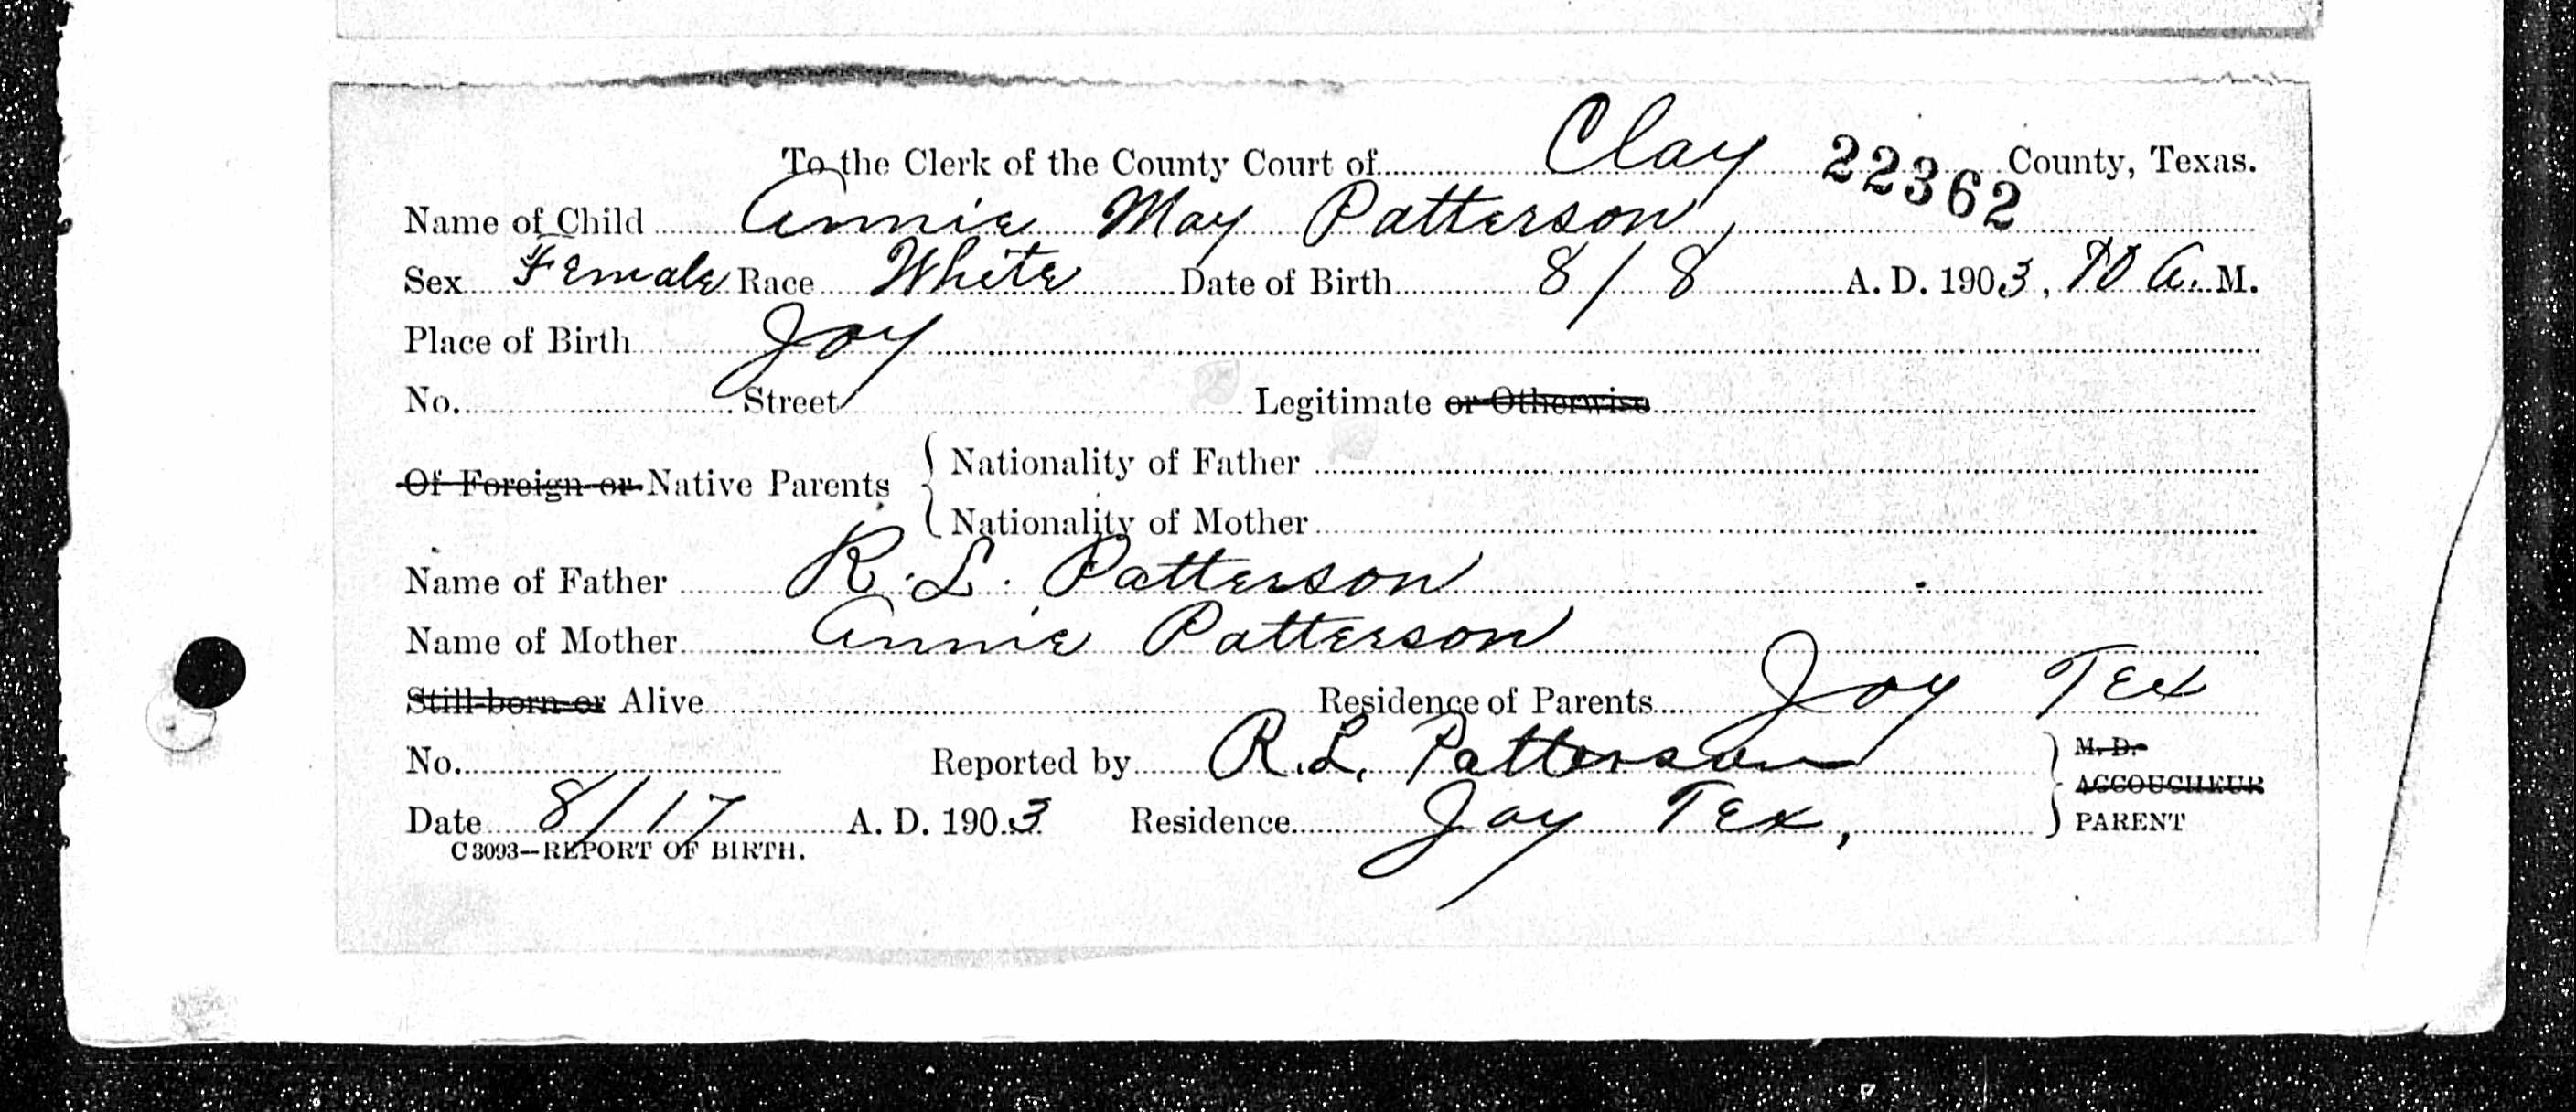 To the Clerk of the County Court of Clay 22362 County, Texas.
Name of Child Annie May Patterson,
Sex Female Race White Date of Birth 8/8 A. D. 1903, 10 A. M.
Place of Birth Joy
No. Street Legitimate or Otherwise
Of Foreign or Native Parents { Nationality of Father
Nationality of Mother
Name of Father R. L. Patterson
Name of Mother Annie Patterson
Still-born or Alive Residence of Parents Joy Tex
No. Reported by R. L. Patterson } M. D.
ACCOUCHEUR
Date 8/17 A. D. 1903 Residence Joy Tex, PARENT
C3093—REPORT OF BIRTH.